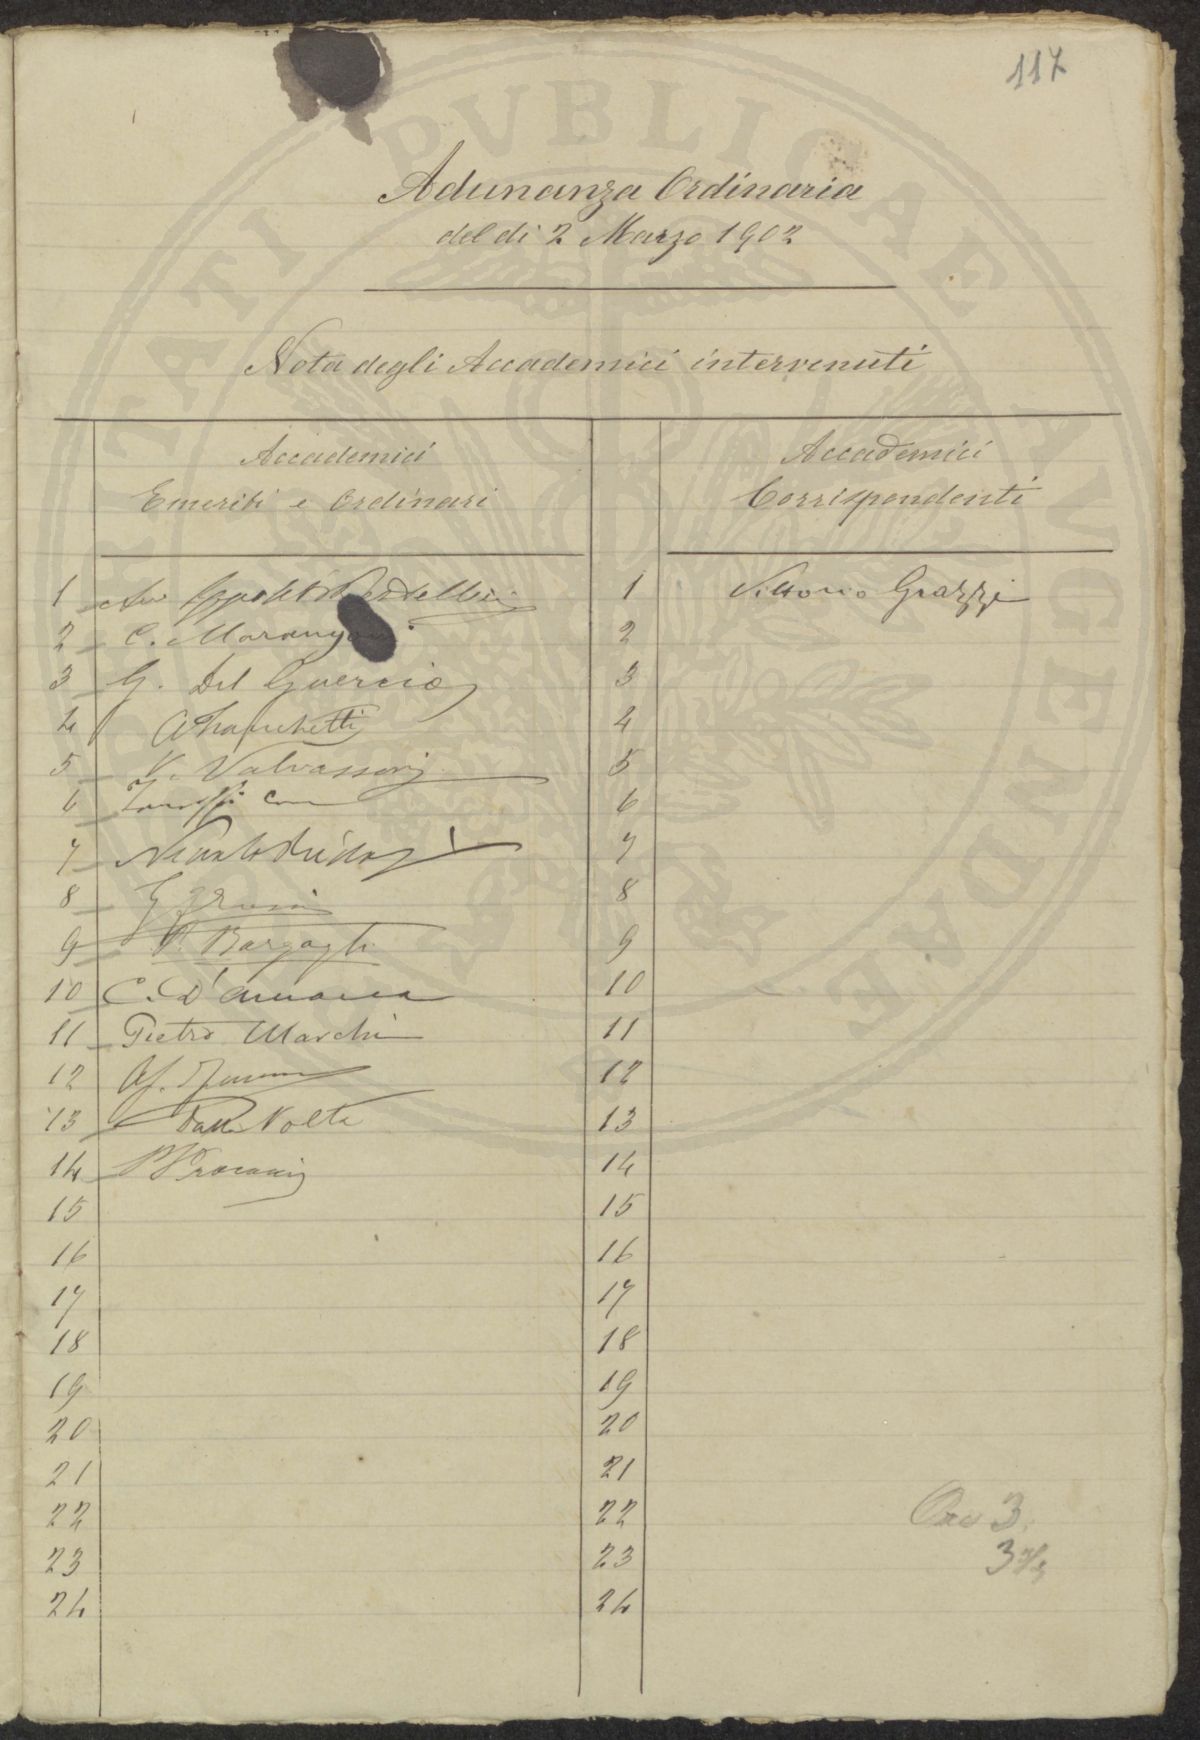 117
Adunanza Ordinaria
del dì 2 Marzo 1902
Nota degli Accademici intervenuti
Accademici
Emeriti e Ordinari
Accademici
Corrispondenti
1
1 Vittorio Grazzi
2 C. Marangoni
2
3 G. Del Guercio
3
4 A Franchetti
4
5 V. Valvassori
5
6
6
7
7
8
8
9 P. Bargagli
9
10 C. D'Ancona
10
11 Pietro Marchi
11
12
12
13 Dalla Volta
13
14
14
15
15
16
16
17
17
18
18
19
19
20
20
21
21
22
22 Ore 3
23
23 3 1/2
24
24
PVBLICAE